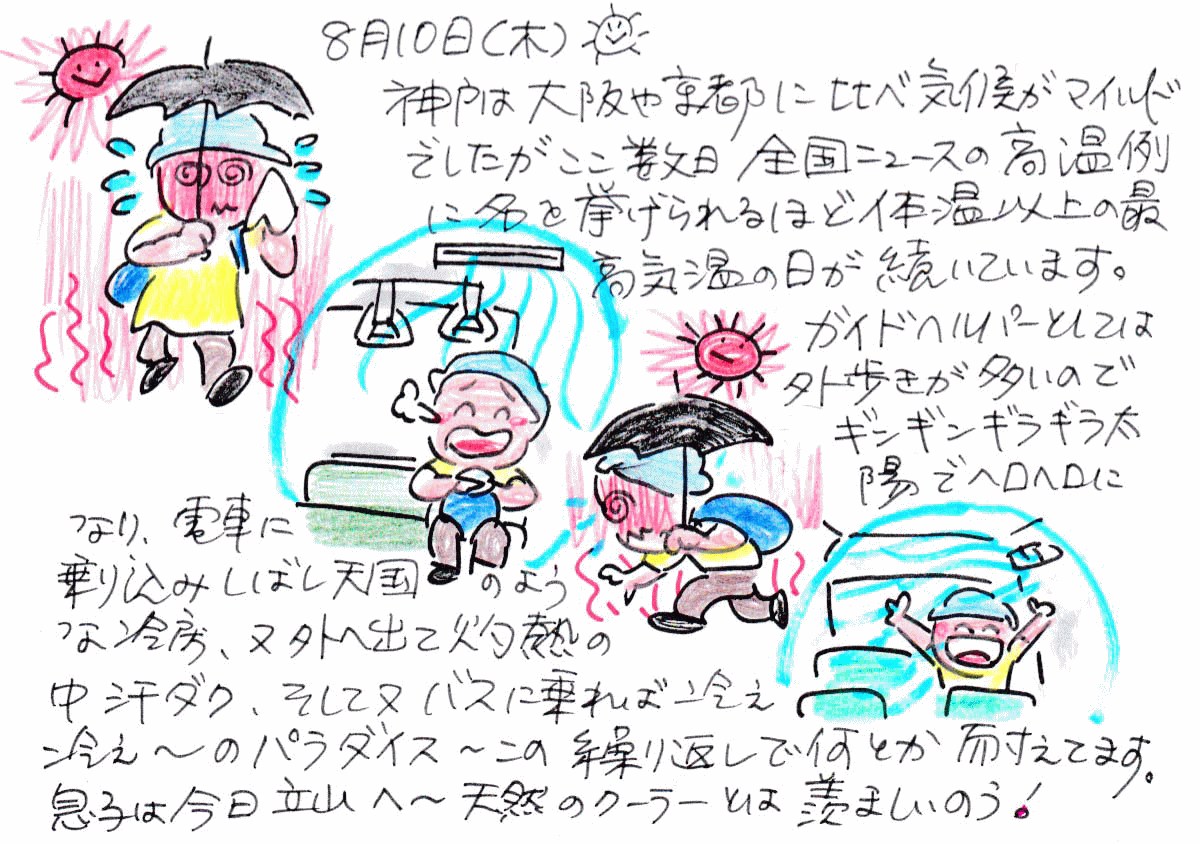 8月10日(木)
神戸は大阪や京都に比べ気候がマイルド
でしたがここ数日全国ニュースの高温例
に名を挙げられるほど体温以上の最
高気温の日が続いています。
ガイドヘルパーとしては
外歩きが多いので
ギンギンギラギラ太
陽でヘロヘロに
なり、電車に
乗り込みしばし天国のよう
な冷房、又外へ出て灼熱の
中汗ダク、そして又バスに乗れば冷え
冷え〜のパラダイス〜この繰り返しで何とか耐えてます。
息子は今日立山へ〜天然のクーラーとは羨ましいのう!